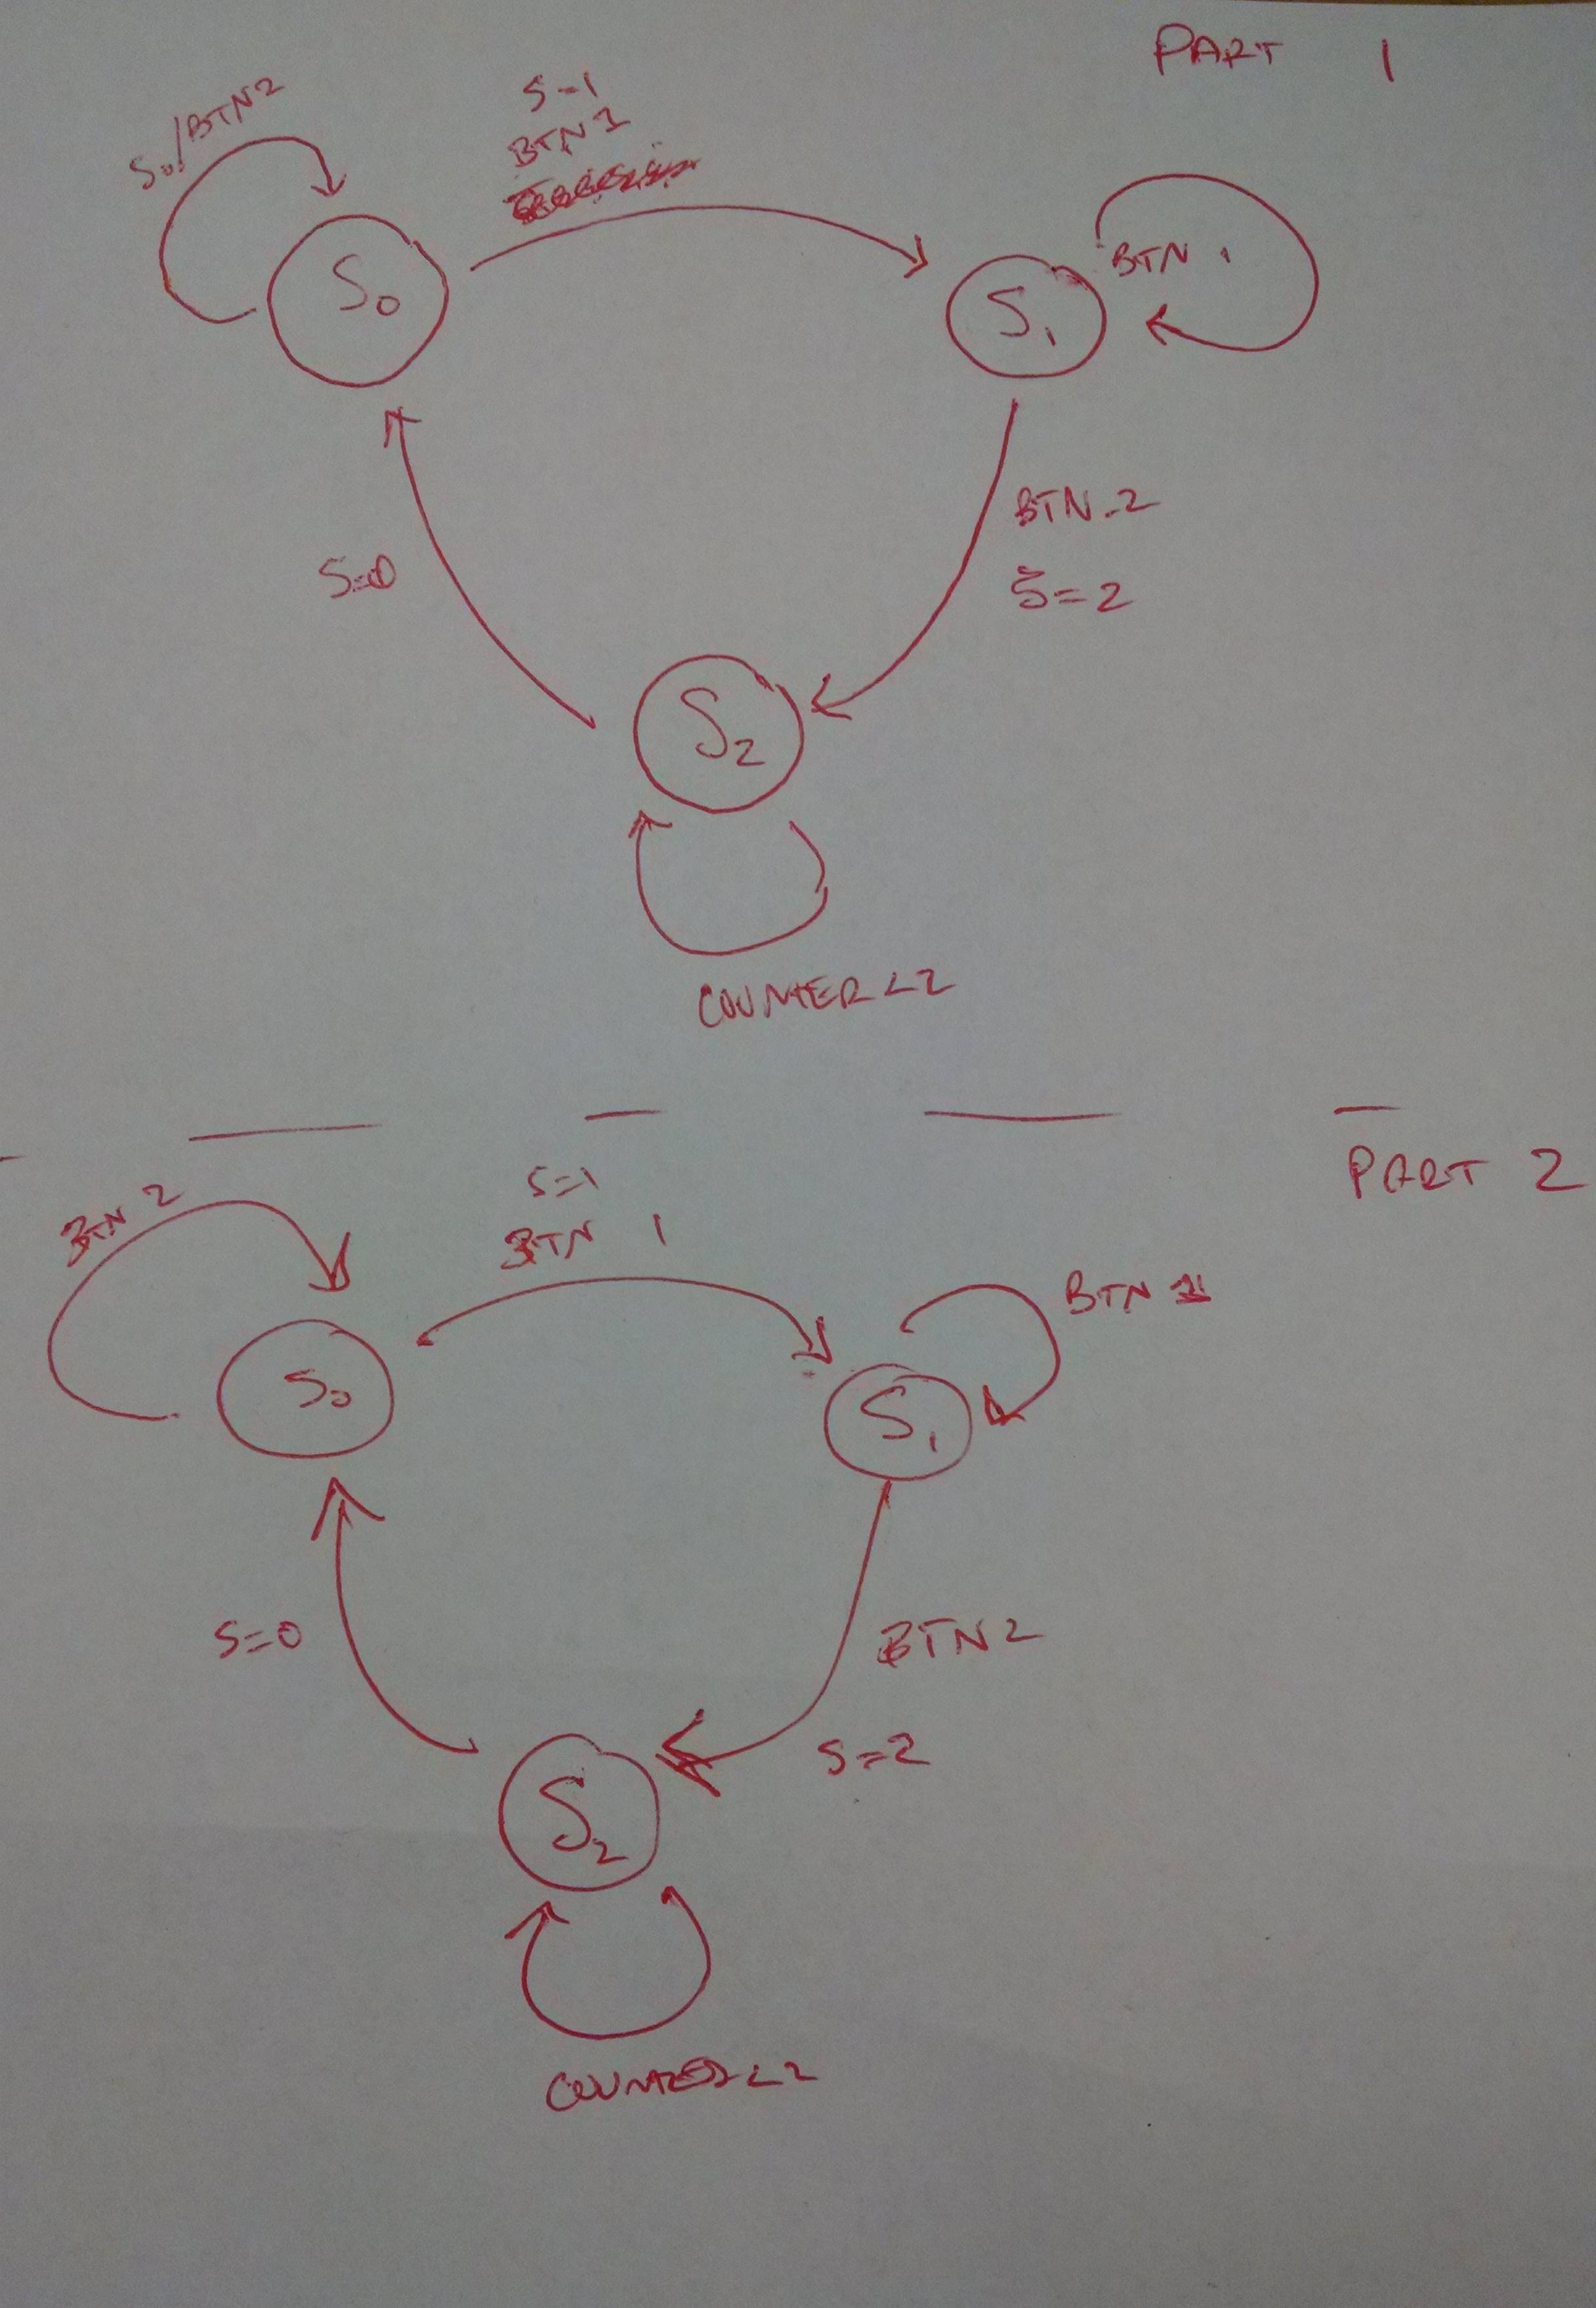 PART 1
S0/BTN2
S=1
BTN 1
S0
S1
BTN 1
BTN 2
S=2
S=0
S2
COUNTER <2
PART 2
BTN 2
S=1
BTN 1
BTN 1
S0
S1
S=0
BTN2
S=2
S2
COUNTER <2